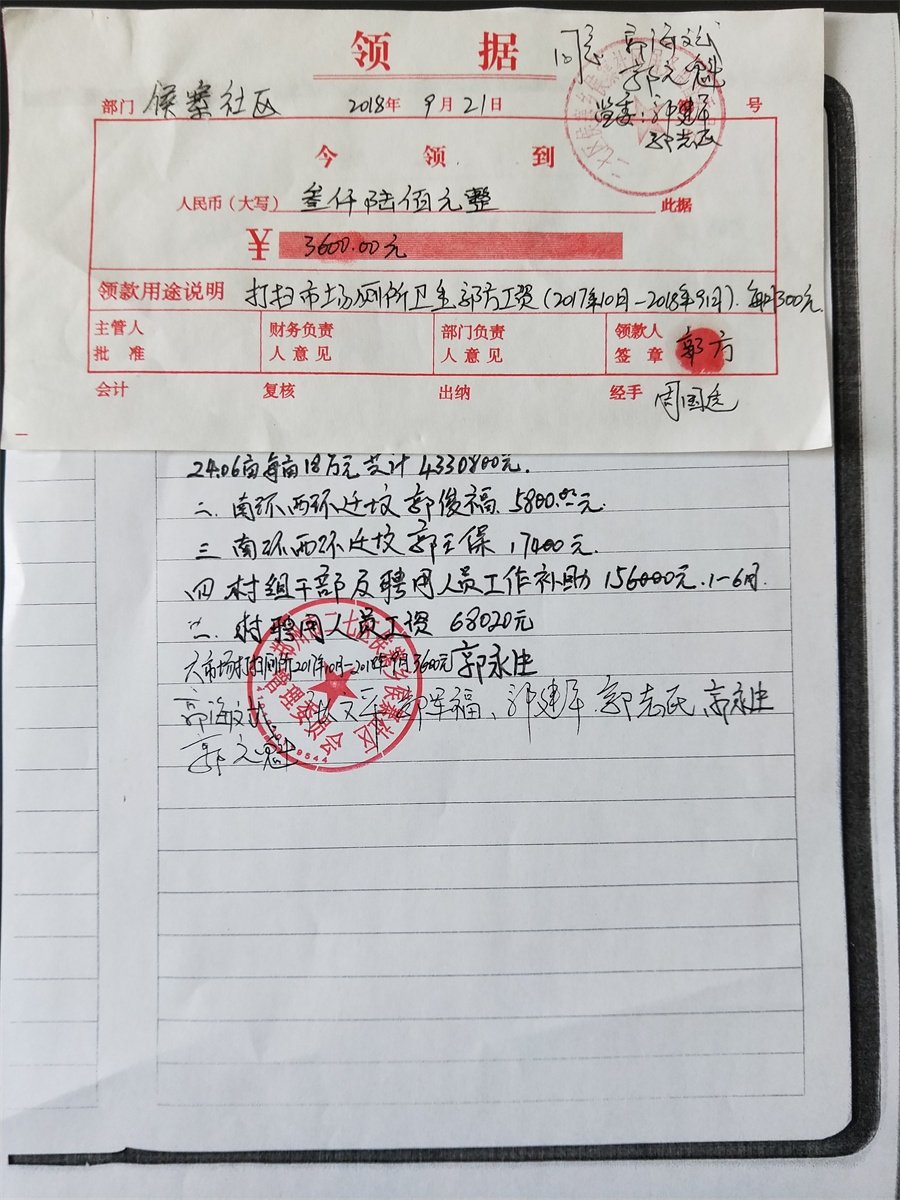 领 据
同意 郭海文
郭元魁
监委：郭建军
郭志民
部门 侯寨社区 2018年 9月21日 号
今 领 到
人民币（大写） 叁仟陆佰元整 此据
¥ 3600.00元
领款用途说明 打扫市场厕所卫生郭方工资（2017年10月-2018年9月）. 每月300元.
主管人 批 准
财务负责 人 意 见
部门负责 人 意 见
领款人 签 章 郭方
会计 复核 出纳 经手 周国
24.06亩每亩18万元共计4330800元.
二. 南环西环迁坟郭俊福. 5800.00元.
三 南环西环迁坟郭王保 17400元.
四 村组干部及聘用人员工作补助 156000元. 1-6月.
村聘用人员工资 68020元
六市场打扫厕所2017年10月-2018年9月3600元 郭永生
郭海文 郭军福、郭建军. 郭志民、郭永生
郭元魁
郑州市二七区侯寨乡侯寨社区
管理委员会